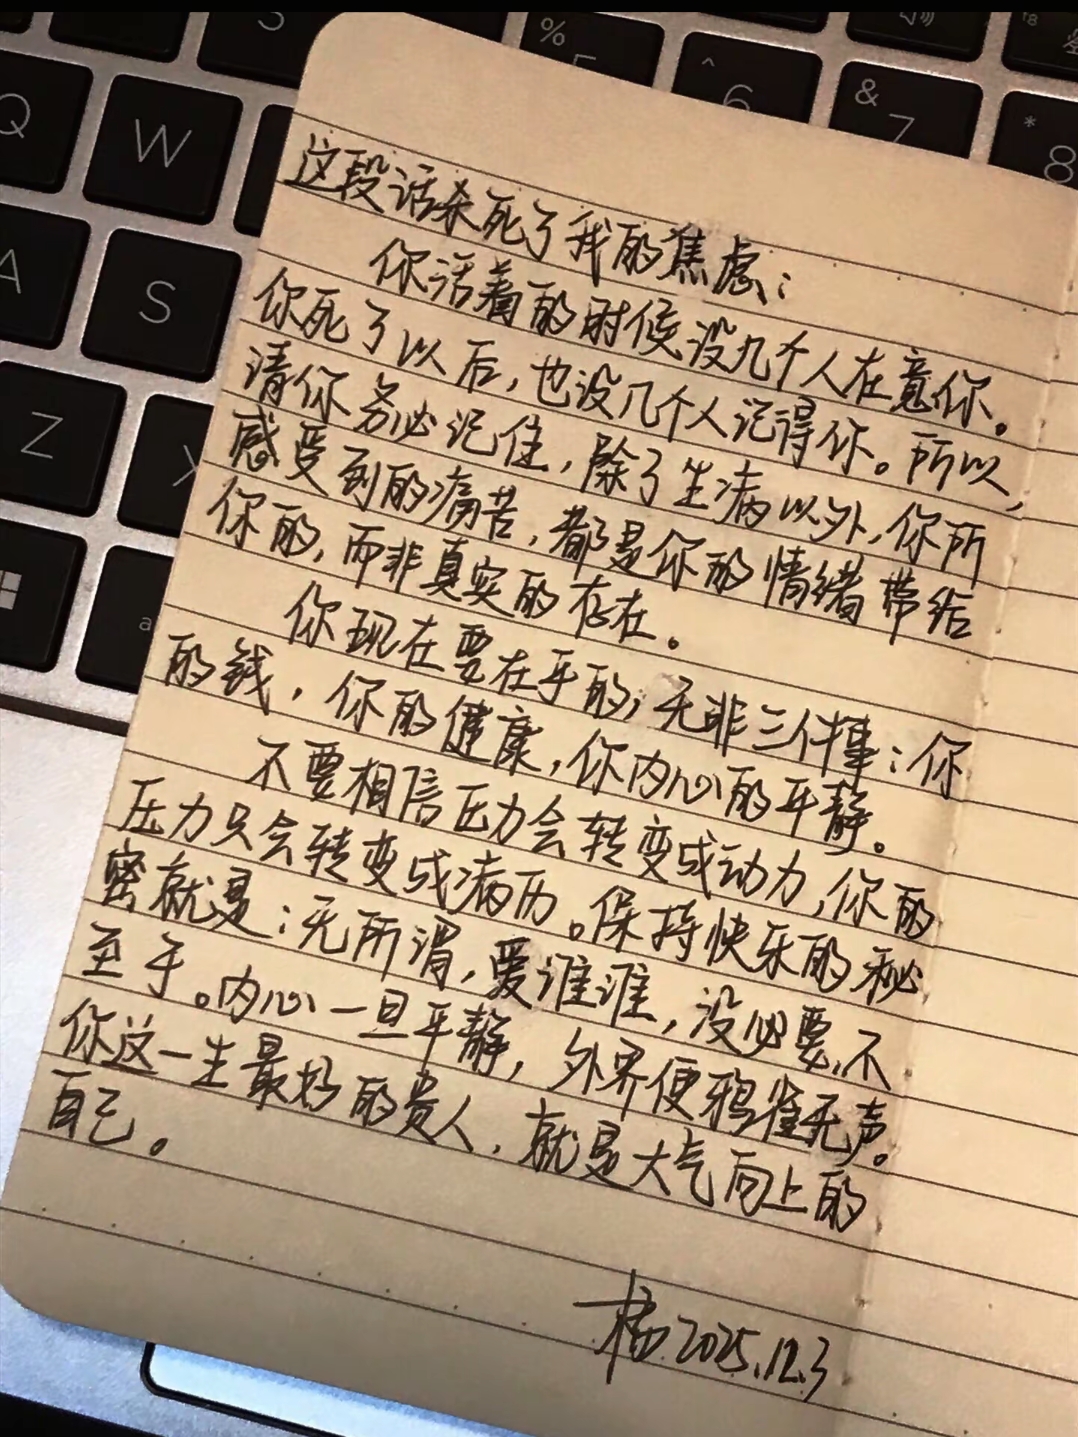 这段话杀死了我的焦虑：
你活着的时候没几个人在意你。
你死了以后，也没几个人记得你。所以，
请你务必记住，除了生病以外，你所
感受到的痛苦，都是你的情绪带给
你的，而非真实的存在。
你现在要在乎的，无非三件事：你
的钱，你的健康，你内心的平静。
不要相信压力会转变成动力，你的
压力只会转变成病历。保持快乐的秘
密就是：无所谓，爱谁谁，没必要，不
至于。内心一旦平静，外界便鸦雀无声。
你这一生最好的贵人，就是大气向上的
自己。
2025.12.3
Q
W
S
A
S
Z
%
5
^
6
&
7
*
8
a